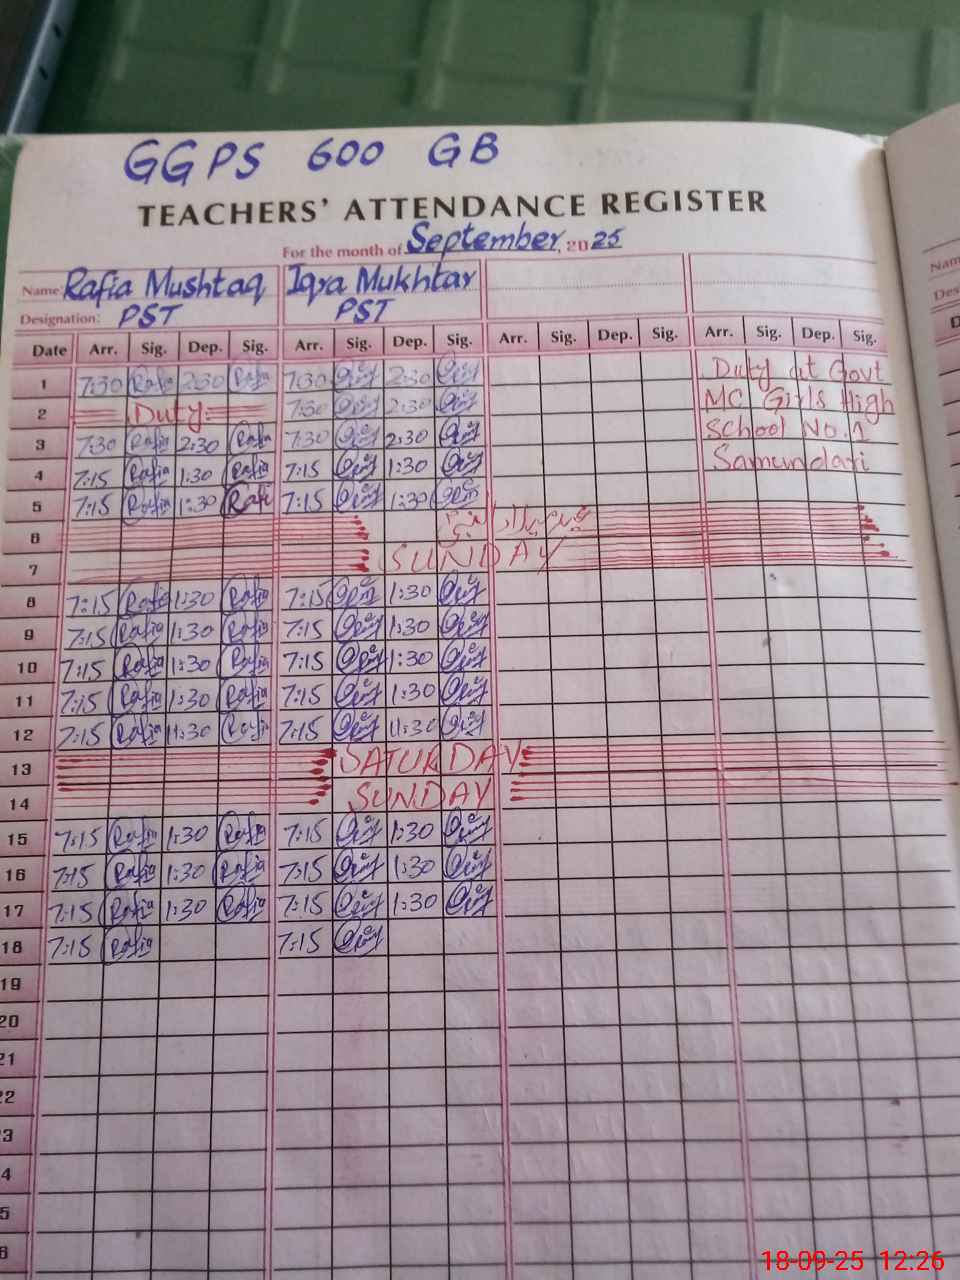 GGPS 600 GB
TEACHERS' ATTENDANCE REGISTER
For the month of September, 2025
Name: Rafia Mushtaq Iqra Mukhtar
Designation: PST PST
Date Arr. Sig. Dep. Sig. Arr. Sig. Dep. Sig. Arr. Sig. Dep. Sig. Arr. Sig. Dep. Sig.
1 7:30 Rafia 2:30 Rafia 7:30 2:30 Duty at Govt
2 Duty 7:30 2:30 MC Girls High
3 7:30 Rafia 2:30 Rafia 7:30 2:30 School No.1
4 7:15 Rafia 1:30 Rafia 7:15 1:30 Samundari
5 7:15 Rafia 1:30 Rafi 7:15 1:30
6
7 SUNDAY
8 7:15 Rafia 1:30 Rafia 7:15 1:30
9 7:15 Rafia 1:30 Rafia 7:15 1:30
10 7:15 Rafia 1:30 Rafia 7:15 1:30
11 7:15 Rafia 1:30 Rafia 7:15 1:30
12 7:15 Rafia 1:30 Rafia 7:15 1:30
13 SATURDAY
14 SUNDAY
15 7:15 Rafia 1:30 Rafia 7:15 1:30
16 7:15 Rafia 1:30 Rafia 7:15 1:30
17 7:15 Rafia 1:30 Rafia 7:15 1:30
18 7:15 Rafia 7:15
19
20
21
22
23
24
25
26
18-09-25 12:26